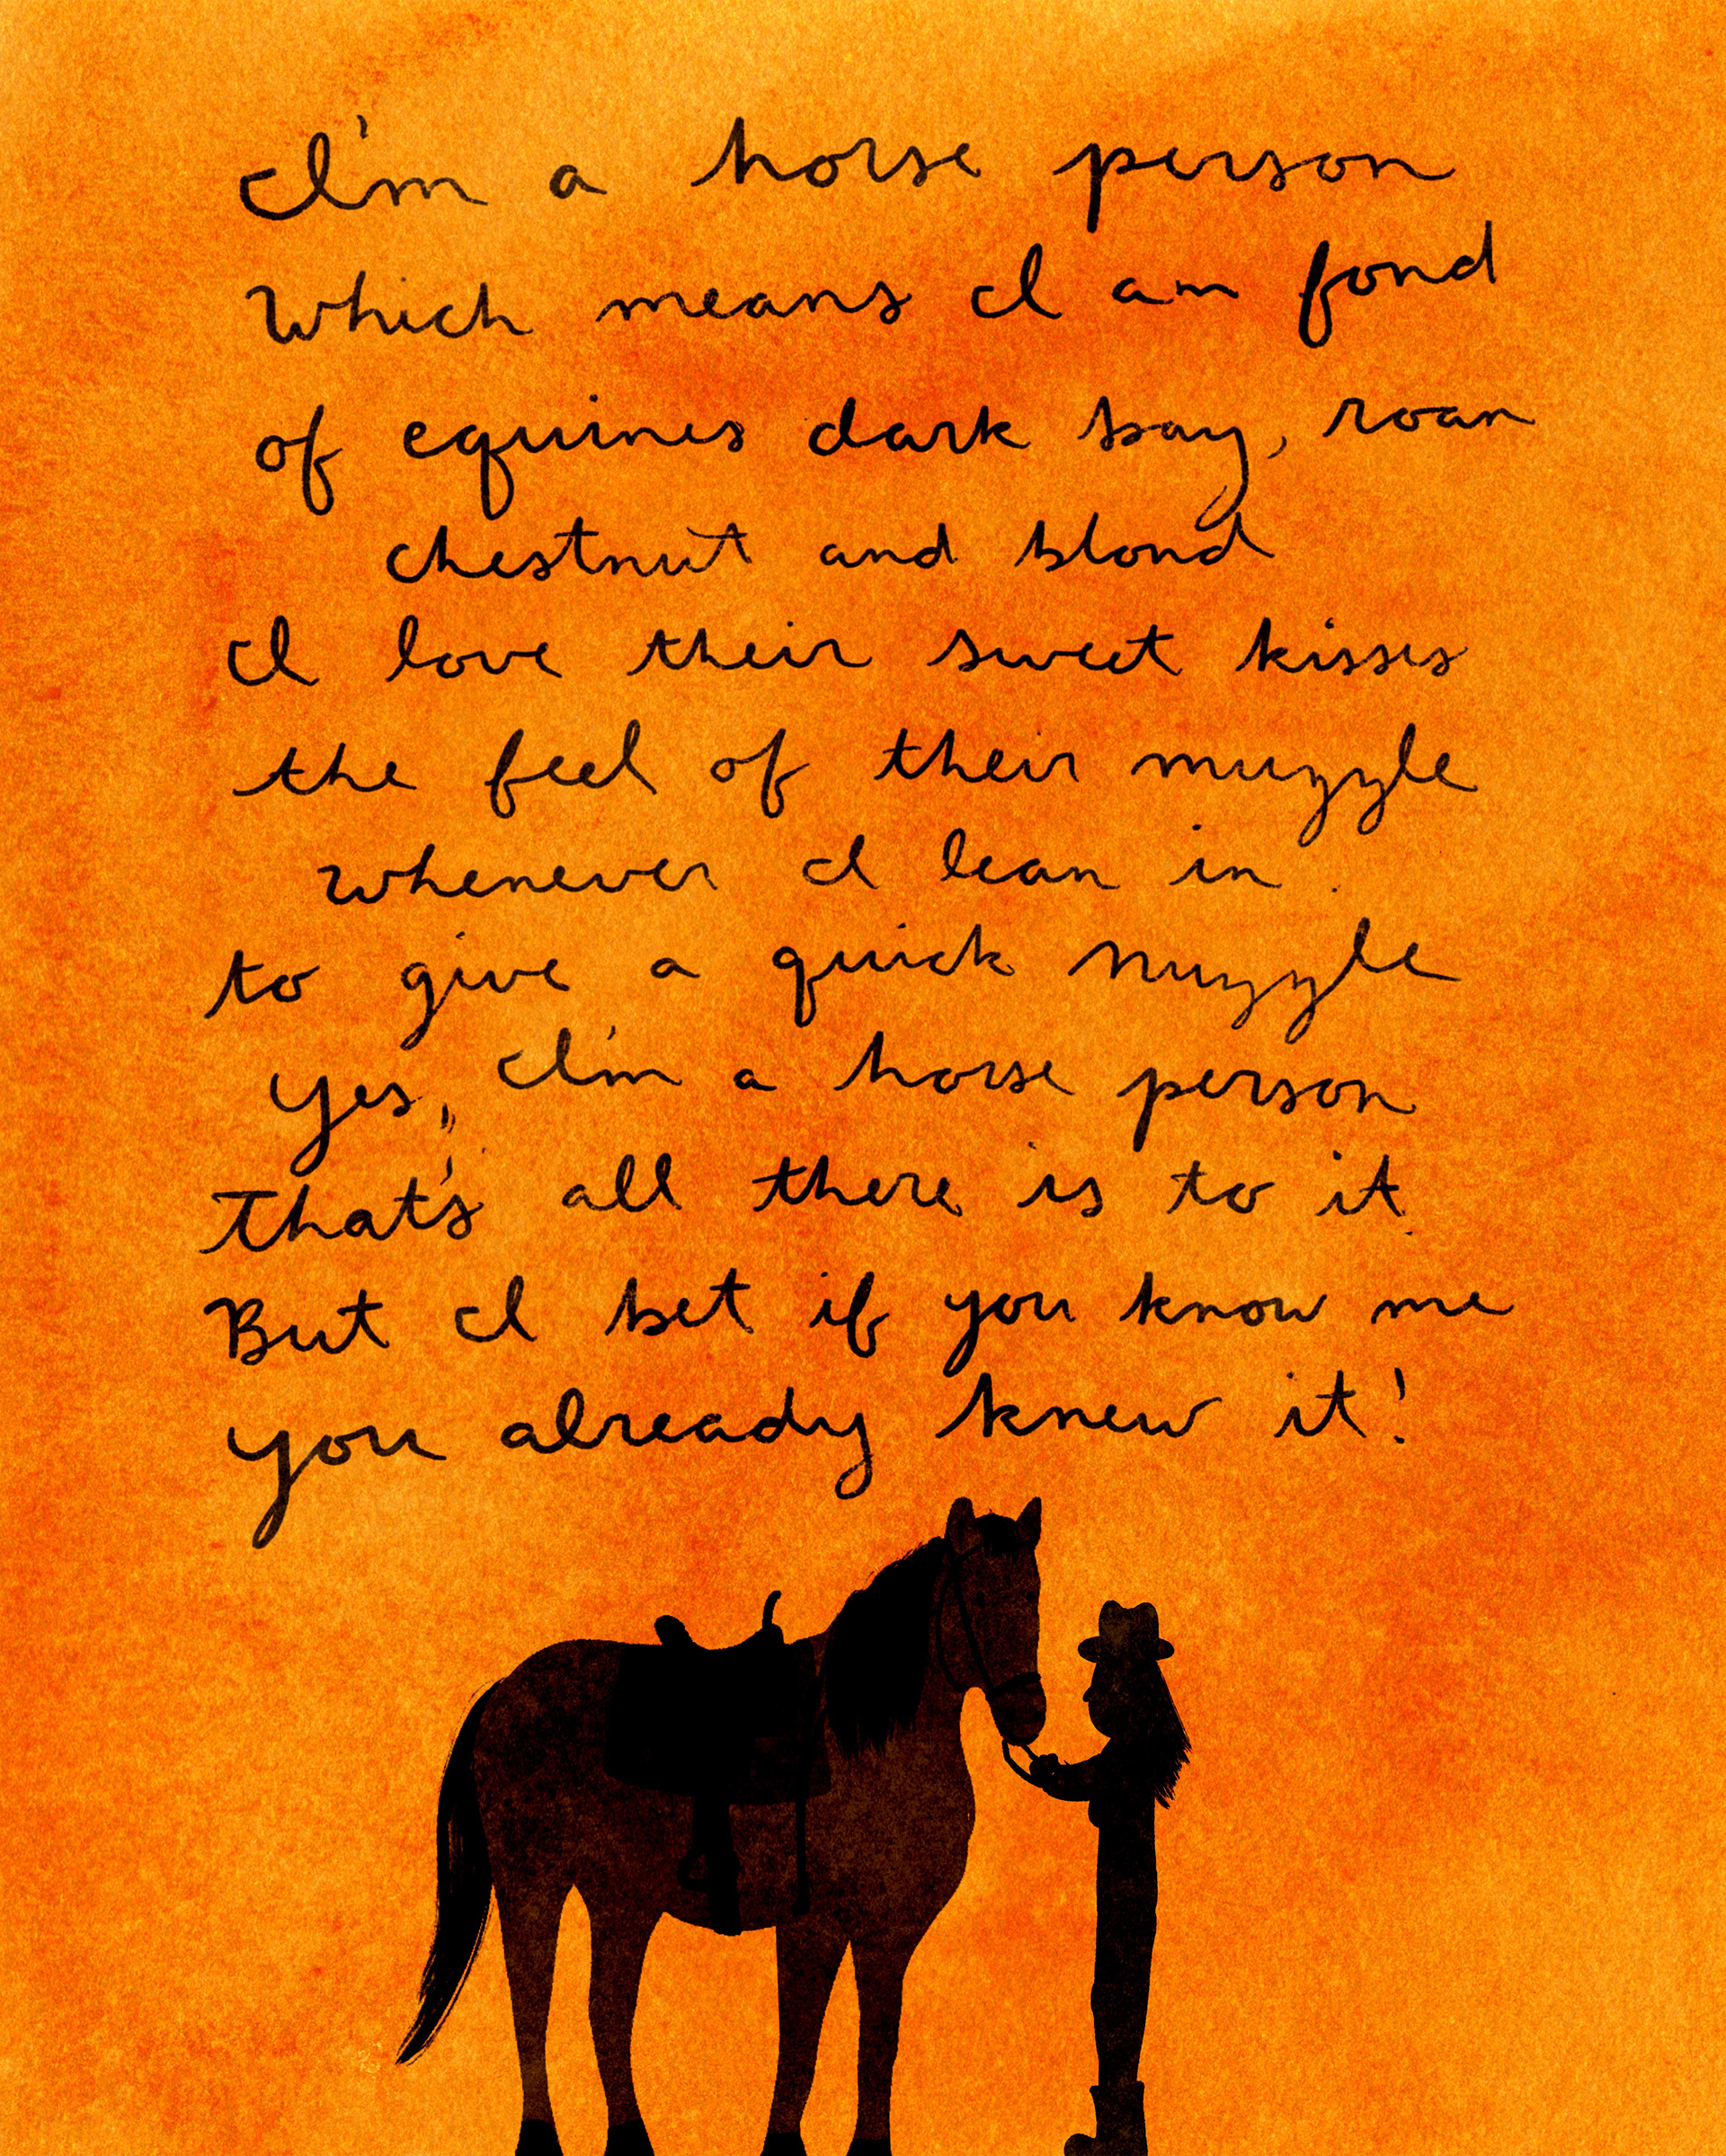 I'm a horse person
Which means I am fond
of equines dark bay, roan
chestnut and blond
I love their sweet kisses
the feel of their muzzle
whenever I lean in.
to give a quick nuzzle
Yes, I'm a horse person
That's all there is to it.
But I bet if you know me
you already knew it!